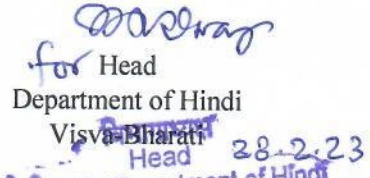 for Head
Department of Hindi
Visva-Bharati
Head 28.2.23
Department of Hindi